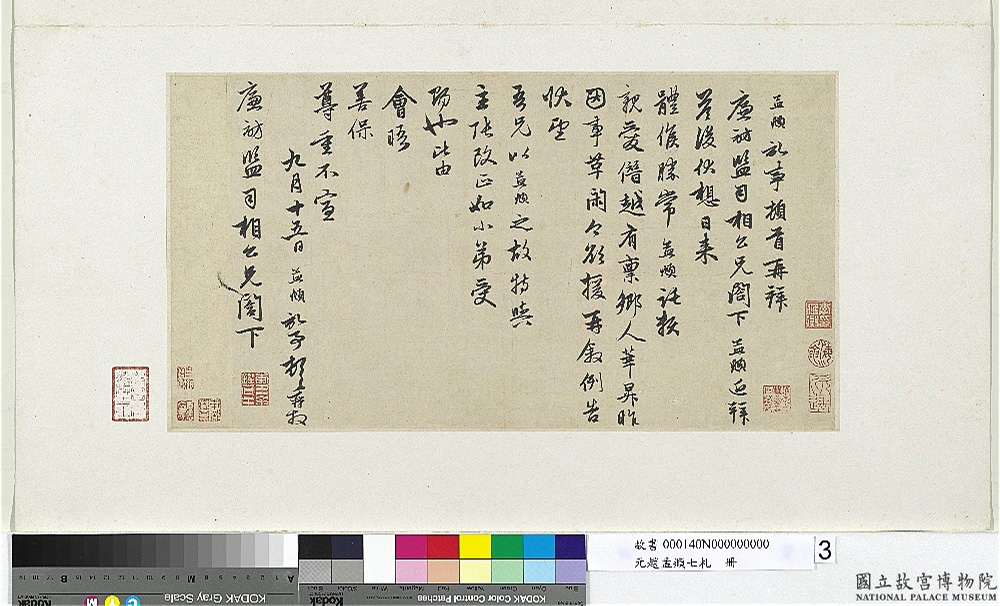 孟頫記事頓首再拜
廉訪監司相公兄閣下孟頫近拜
答後伏想日來
體候勝常孟頫託契
親愛僭越有禀鄉人華昇昨
因事革閑今欲援再敘例告
伏望
吾兄以孟頫之故特與
主張改正如小弟受
賜也比由
會晤
善保
尊重不宣
九月十五日孟頫記事頓首再拜
廉訪監司相公兄閣下
故書 000140N000000000
元趙孟頫七札 冊
3
KODAK Gray Scale
A
M
B
Kodak
KODAK Color Control Patches
國立故宮博物院
NATIONAL PALACE MUSEUM